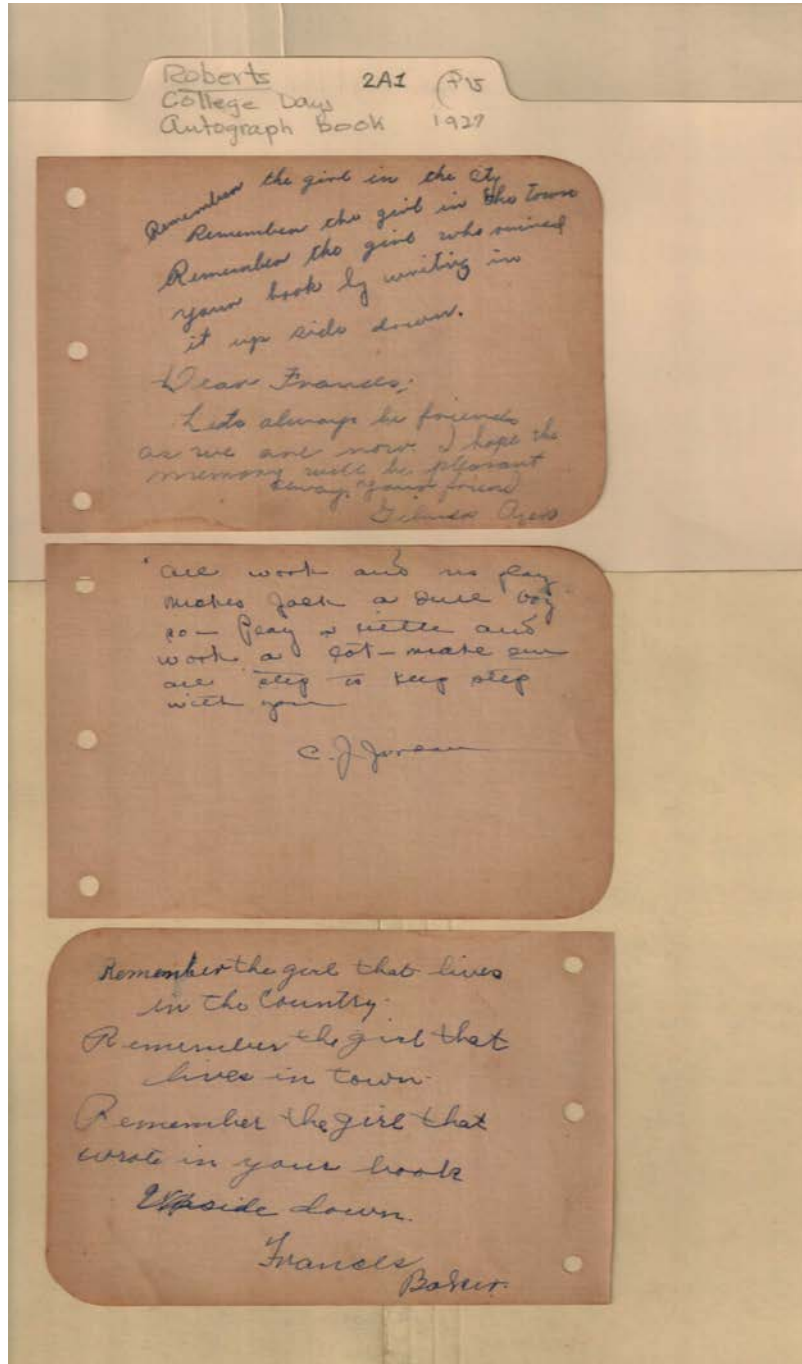 Roberts 2A1
College Days
Autograph Book 1927
Remember the girl in the city
Remember the girl in the town
Remember the girl who ruined
your book by writing in
it up side down.
Dear Frances;
Lets always be friends
as we are now. I hope the
memory will be pleasant
alway. Your friend
"All work and no play"
makes Jack a dull boy
so - Play a little and
work a lot - make em
all step to keep step
with you
C. J.
Remember the girl that lives
in the Country.
Remember the girl that
lives in town.
Remember the girl that
wrote in your book
Upside down.
Frances
Baker.